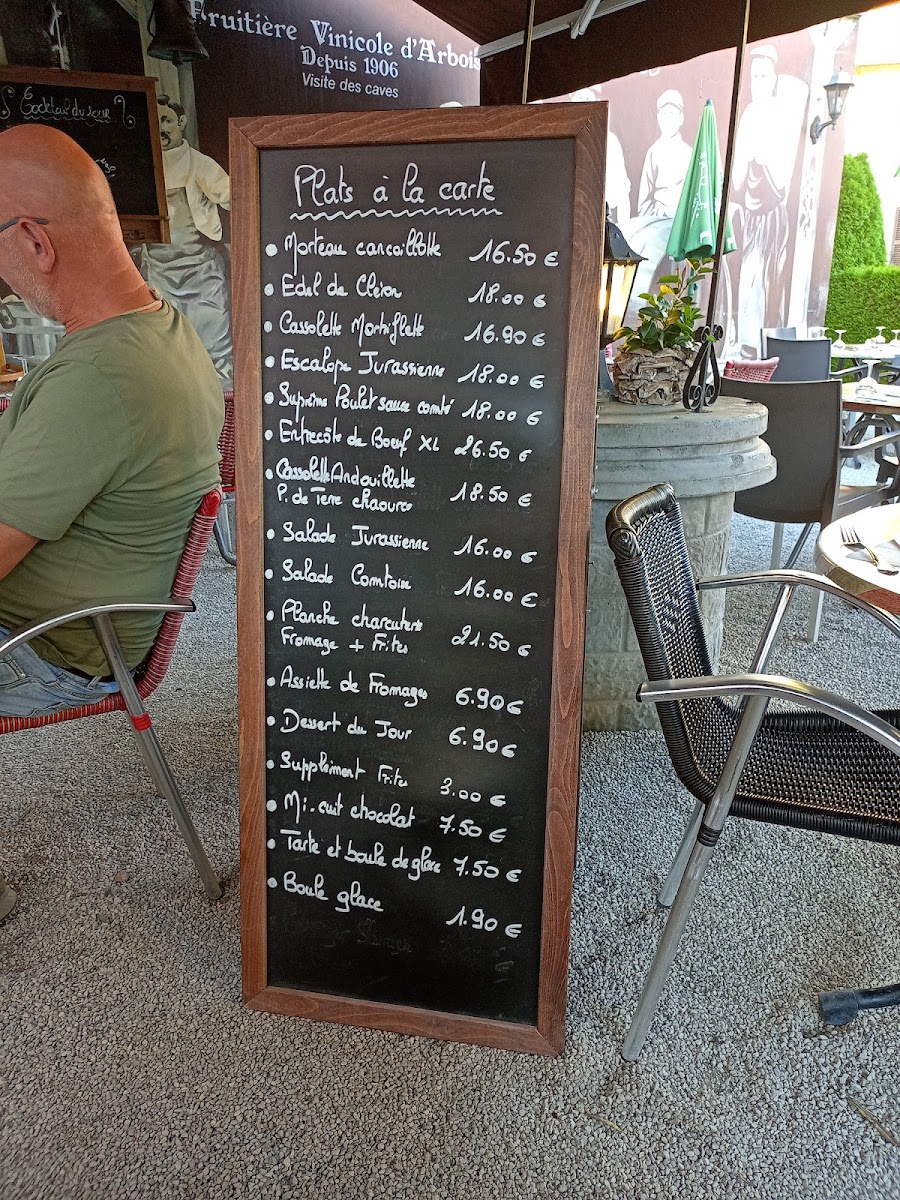 Fruitière Vinicole d'Arbois
Depuis 1906
Visite des caves
Cocktail du Jour
Plats à la carte
• Morteau cancoillotte 16.50 €
• Edel de Cleron 18.00 €
• Cassolette Morbiflette 16.90 €
• Escalope Jurassienne 18.00 €
• Suprême Poulet sauce comté 18.00 €
• Entrecôte de Boeuf XL 26.50 €
• Cassolette Andouillette
P. de Terre chaource 18.50 €
• Salade Jurassienne 16.00 €
• Salade Comtoise 16.00 €
• Planche charcuterie
Fromage + Frites 21.50 €
• Assiette de Fromages 6.90 €
• Dessert du Jour 6.90 €
• Supplément Frites 3.00 €
• Mi-cuit chocolat 7.50 €
• Tarte et boule de glace 7.50 €
• Boule glace 1.90 €